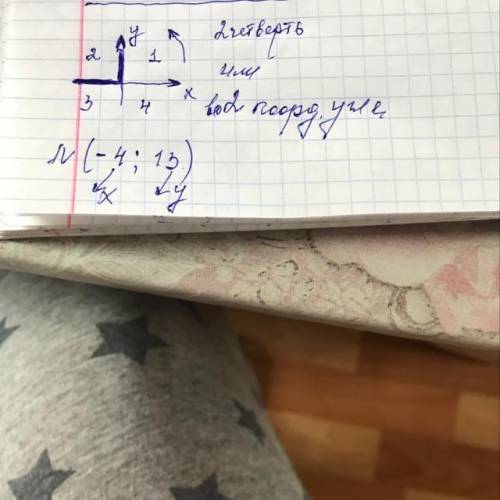 y
2 1
3 4
x
2 четверть
или
во 2 коорд. угле
N (-4; 13)
x y